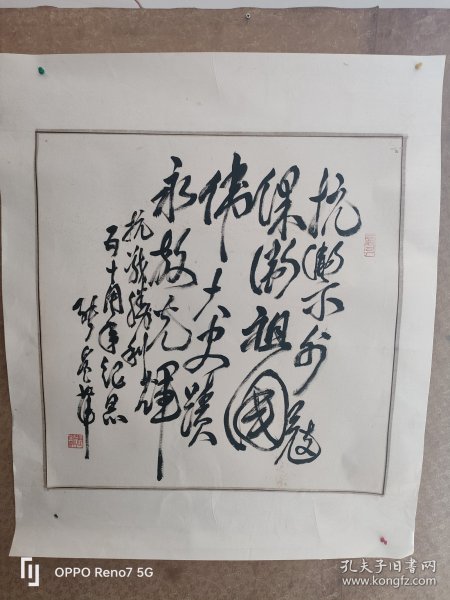 抗禦外寇
保衛祖國
偉大史蹟
永放光輝
抗战勝利
五十周年纪念
OPPO Reno7 5G
孔夫子旧书网
www.kongfz.com